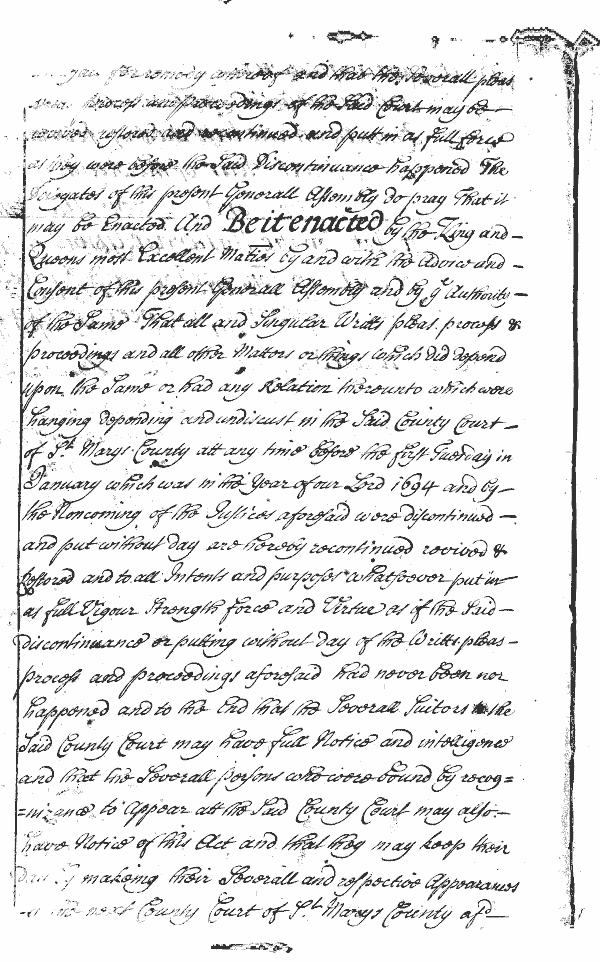 for remedy whereof and that the Severall pleas
process and proceedings of the Said Court may be
revived restored and recontinued and put in as full force
as they were before the Said Discontinuance happened The
Delegates of this present Generall Assembly do pray That it
may be Enacted. And Be it enacted by the King and
Queens most Excellent Maties by and with the Advice and
Consent of this present Generall Assembly and by ye Authority
of the Same That all and Singular Writts pleas process &
proceedings and all other Matters or things which did depend
upon the Same or had any Relation thereunto which were
hanging depending and undiscust in the Said County Court
of St. Marys County att any time before the first Tuesday in
January which was in the Year of our Lord 1694 and by
the Noncoming of the Justices aforesaid were discontinued
and put without day are hereby recontinued revived &
Restored and to all Intents and purposes whatsoever put in
as full Vigour Strength force and Virtue as if the Said
discontinuance or putting without day of the Writts pleas
process and proceedings aforesaid had never been nor
happened and to the End that the Severall Suitors to the
Said County Court may have full Notice and intelligence
and that the Severall persons who were bound by recog=
=nizance to Appear att the Said County Court may also
have Notice of this Act and that they may keep their
Day by makeing their Severall and respective Appearances
the next County Court of St. Marys County afd